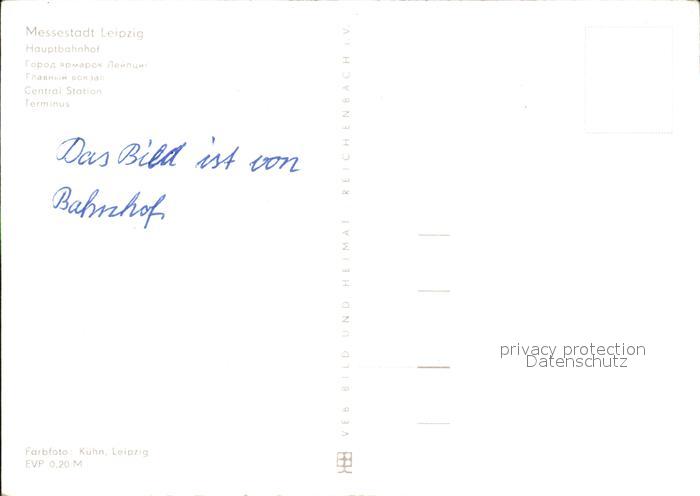 Messestadt Leipzig
Hauptbahnhof
Город ярмарок Лейпциг
Главный вокзал
Central Station
Terminus
Das Bild ist von
Bahnhof
VEB BILD UND HEIMAT REICHENBACH i.V.
privacy protection
Datenschutz
Farbfoto: Kühn, Leipzig
EVP 0,20 M